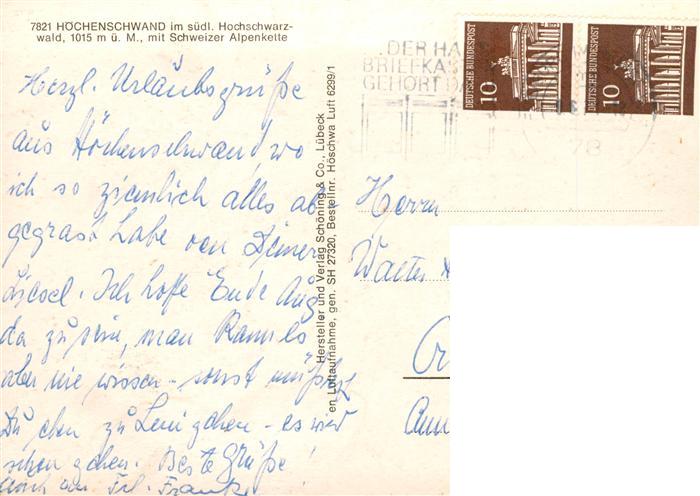 7821 HÖCHENSCHWAND im südl. Hochschwarz-
wald, 1015 m ü. M., mit Schweizer Alpenkette
Herzl. Urlaubsgrüße
aus Höchenschwand, wo
ich so ziemlich alles ab-
gegrast habe von Deiner
Liesel. Ich hoffe Ende Aug
da zu sein, man kann es
aber nie wissen - sonst müßtest
Du eben zu Leni gehen - es wird
schon gehen. Beste Grüße!
auch an Frl. Franke
Hersteller und Verlag Schöning & Co., Lübeck
en Luftaufnahme, gen. SH 27320, Bestellnr. Höschwa Luft 6299/1
DER HA
BRIEFKAS
GEHÖRT
78
DEUTSCHE BUNDESPOST
10
DEUTSCHE BUNDESPOST
10
Herrn
Walter